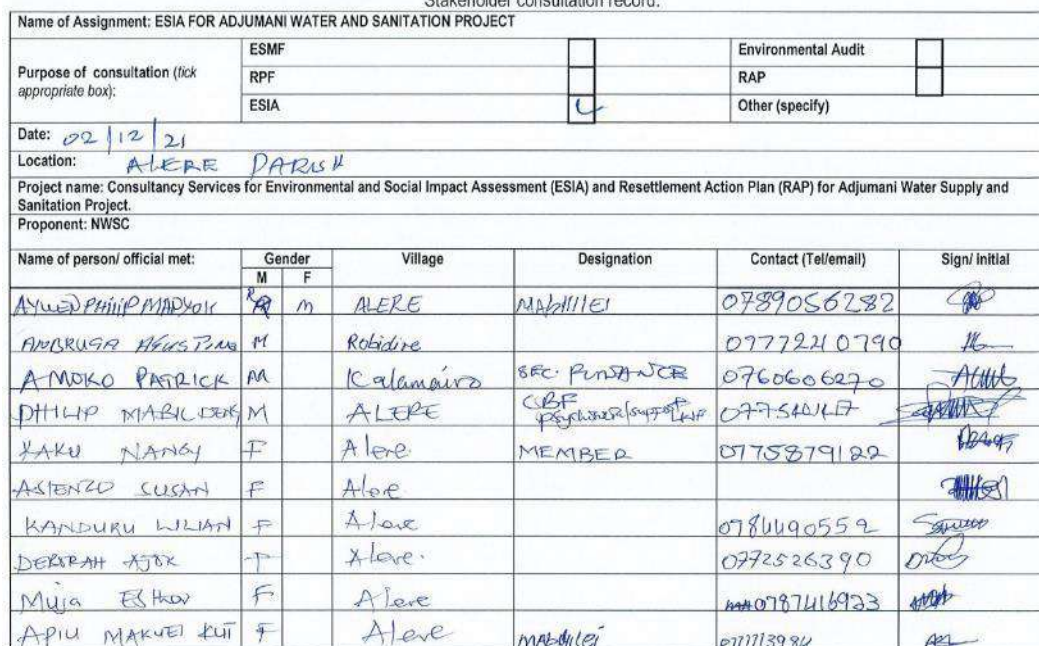 Stakeholder consultation record.
Name of Assignment: ESIA FOR ADJUMANI WATER AND SANITATION PROJECT
Purpose of consultation (tick appropriate box):
ESMF Environmental Audit
RPF RAP
ESIA Other (specify)
Date: 02/12/21
Location: ALERE PARISH
Project name: Consultancy Services for Environmental and Social Impact Assessment (ESIA) and Resettlement Action Plan (RAP) for Adjumani Water Supply and
Sanitation Project.
Proponent: NWSC
Name of person/ official met: Gender Village Designation Contact (Tel/email) Sign/ initial
M F
PHILIP M ALERE 0789056282
M Robidire 0777240790
AMOKO PATRICK M SEC. 0760606270
PHILIP M ALERE CBF
NANCY F Alere MEMBER 0775879122
ASIENZO SUSAN F Alere
KANDURU LILIAN F Alere 0784490552
DEBORAH AJOK F Alere. 0772526390
Muja F Alere 0787416923
APIU MAKUEI KUT F Alere